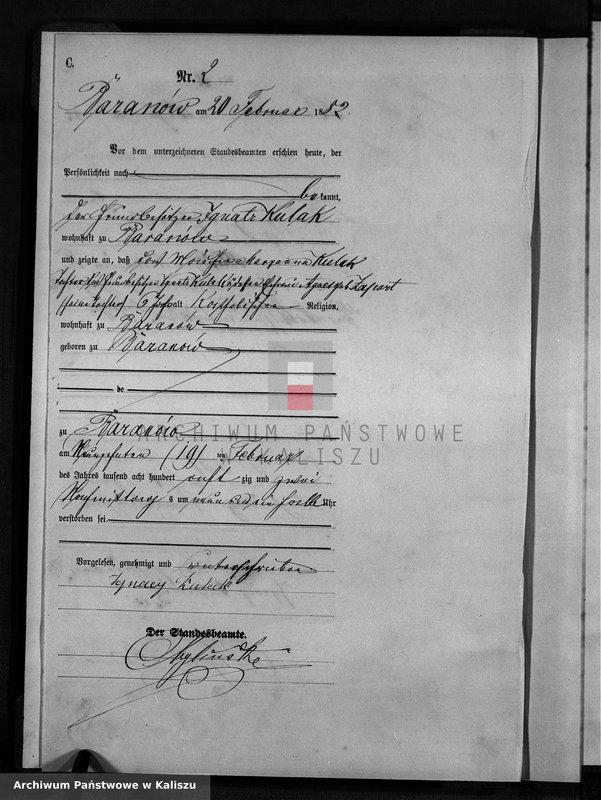 C.
Nr. 2
Baranów am 20 Februar 1882.
Vor dem unterzeichneten Standesbeamten erschien heute, der
Persönlichkeit nach
bekannt,
der Grundbesitzer Ignatz Kulak
wohnhaft zu Baranów
und zeigte an, daß Kulak
Tochter des Ignatz Kulak
6 Jahr alt Katholischer Religion,
wohnhaft zu Baranów
geboren zu Baranów
de
zu Baranów
am Neunzehnten (19) ten Februar
des Jahres tausend acht hundert acht zig und zwei
Nachmittag s um neun und ein halb Uhr
verstorben sei.
Vorgelesen, genehmigt und unterschrieben
Ignacy Kulak
Der Standesbeamte.
ARCHIWUM PAŃSTWOWE
W KALISZU
Archiwum Państwowe w Kaliszu